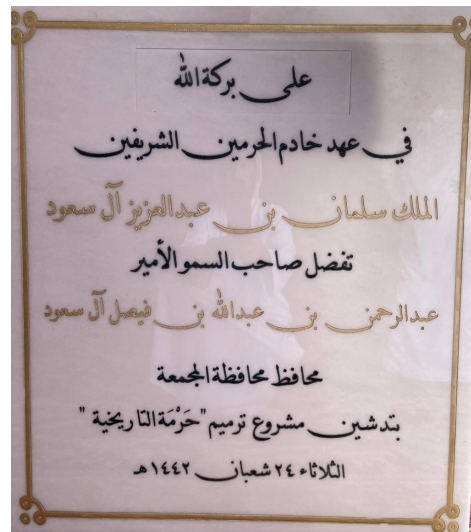 على بركة الله
في عهد خادم الحرمين الشريفين
الملك سلمان بن عبدالعزيز آل سعود
تفضل صاحب السمو الأمير
عبدالرحمن بن عبدالله بن فيصل آل سعود
محافظ محافظة المجمعة
بتدشين مشروع ترميم "حَرْمَة التاريخية"
الثلاثاء ٢٤ شعبان ١٤٤٢هـ